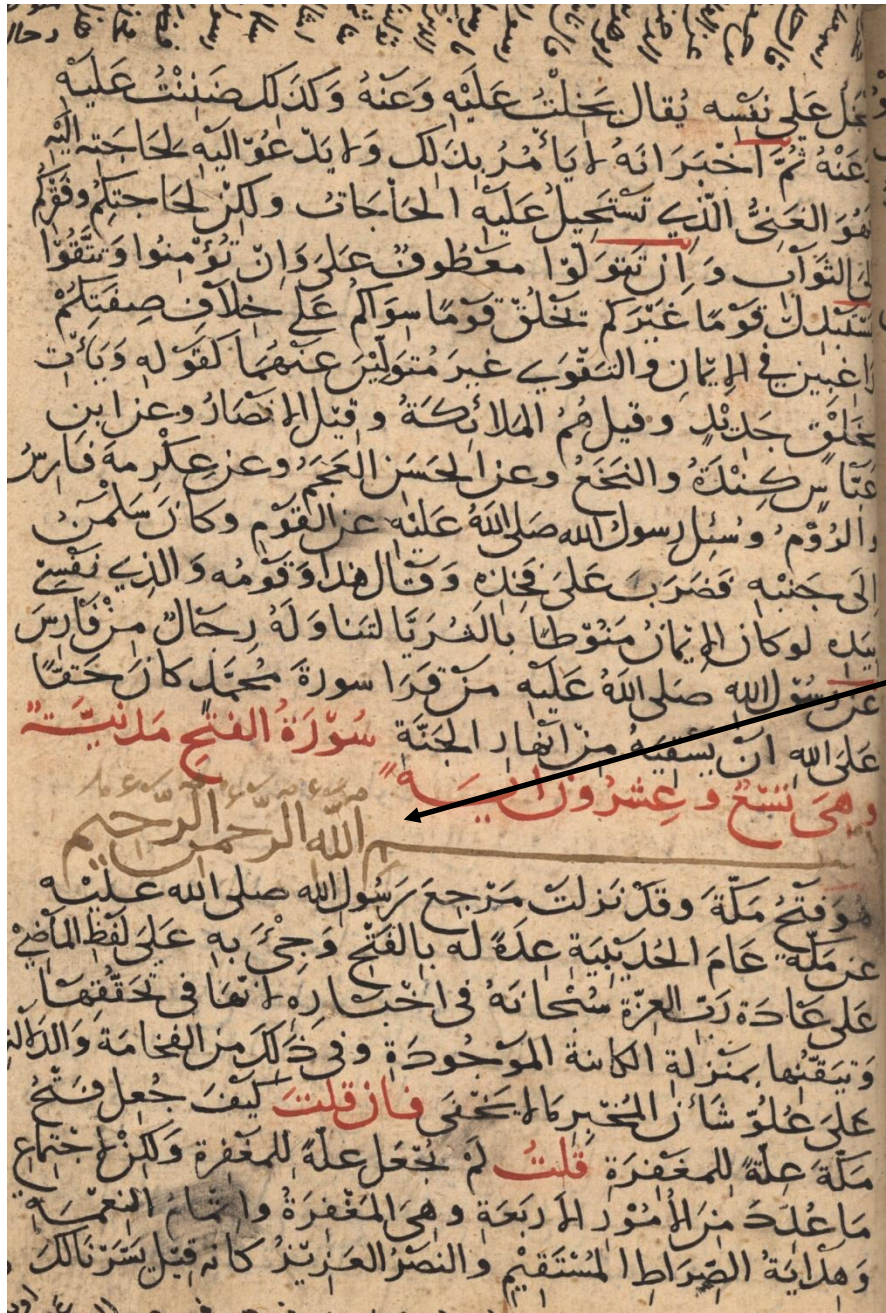 بخل على نفسه يقال بَخِلْتُ عَلَيْهِ وَعَنْهُ وَكَذَلِكَ ضَنِنْتُ عَلَيْهِ
وعَنْهُ ثُمَّ اَخْبَرَ انَهُ لا يَأمُرُ بِذَلِك وَلا يَدْعُوّ اليْهِ لِحَاجَتِهِ اليْهِ
فهُوَ الغَنِىُّ الّذِي تَسْتَحِيلُ عَلَيْهِ الحَاجَاتُ ولكِنْ لحَاجتِكُمْ وفَقْرِكُم
الىَ الثوَاب وَاِنْ تَتَوَلَوّا مَعْطُوفٌ عَلىَ وَاِنْ تُؤمِنوا وَتتَّقُوا
يَسْتَبْدِلْ قَوْمًا غَيْرَكم يَخْلُقْ قَوْمًا سِوَاكُمْ عَلى خِلافِ صِفَتِكُمْ
رَاغبِين في الاِيْمَانِ والتَقْوَى غيرَ مُتَوَلِيْنَ عَنْهُمَا كقَوْلهِ وَيَأتِ
بخَلْقٍ جَدِيْدٍ وقيل هُمُ المَلائِكَةُ وقِيْل الانصَارُ وعن ابن
عَبّاسٍ كِنْدَةُ والنخَعُ وعن الحَسَن العَجَم وعن عِكرِمةَ فَارِسُ
والرُوْم وسُئِل رسولُ الله صَلى اللهُ عَلَيْه عن القَوْم وكانَ سَلْمنُ
اِلَى جَنْبِهِ فضَرَبَ عَلىَ فَخِذِهِ وَقَال هٰذا وَقَوْمُه وَالذِي نَفْسِيْ
بيَدِهِ لو كان الاِيْمَانُ مَنُوْطًا بالثُرَيَّا لتنَاوَلَهُ رِجَالٌ مِنْ فَارِسَ
عَن رَسُوْل اللهِ صَلى اللهُ عَلَيْهِ مَنْ قَرَا سورَةَ مُحَمَّدٍ كانَ حَقًّا
عَلىَ اللهِ انْ يَسْقِيَهُ مِنْ انْهَارِ الجَنَّةِ سُوْرَةُ الفتْحِ مَدَنيَّة
وهيَ تسْعٌ وعِشرُونَ ايَه
بسم الله الرحمن الرحيم
هُوَ فتْحُ مَكّةَ وقَدْ نَزلتْ مَرْجِعَ رَسُول الله صلى الله عليْهِ
عن مَكّةَ عَامَ الحُدَيْبِيَةِ عِدَةً لَه بالفَتْحِ وَجِيْءَ به عَلىَ لَفْظِ المَاضِيْ
عَلىَ عَادَة رَبّ العِزّةِ سُبْحَانَهُ فى اخْبَارِهِ لانَها في تَحَقُّقِهَا
وَتَيَقُّنِها بِمَنْزِلَةِ الكاينةِ المَوْجُودَةِ وفي ذلِكَ مِن الفخَامَة وَالدَلالةِ
عَلىَ عُلُوّ شَأنِ المُخْبِرِ مَا لا يَخْفَى فان قلتَ كَيْفَ جُعِل فتْحُ
مَكّةَ عِلّةً للمَغفِرَةِ قلتُ لَمْ يُجْعَل عِلّةً للمغْفِرةِ وَلكِنْ لاِجْتِمَاع
مَا عُدِّدَ مِنَ الأُمُوْرِ الاَرْبَعَةِ وهيَ المَغْفِرَةُ واتْمَامُ النعْمَةِ
وَهِدَايَةُ الصِّرَاطِ المُسْتَقِيْم والنصْرُ العَزيْزُ كانه قِيْل يَسّرْنَا لَكَ